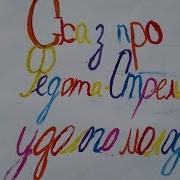 Сказ про
Федота-Стрел
удалого молод